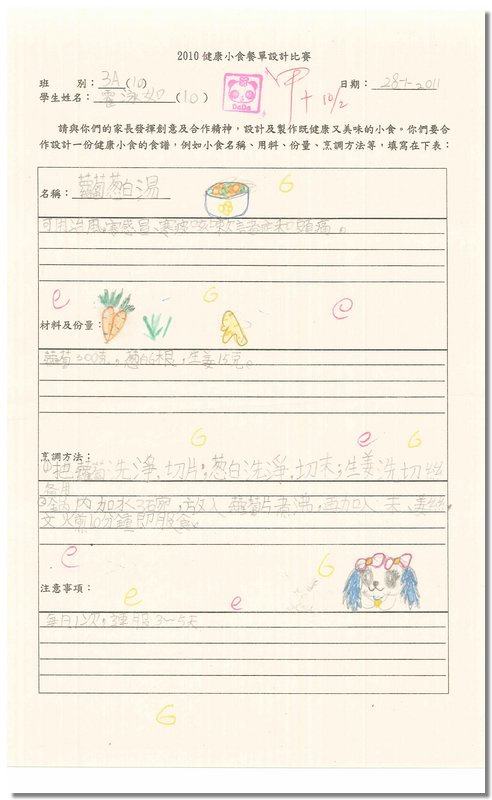 2010 健康小食餐單設計比賽
班 別：3A (10)
日期：28-1-2011
甲+ 10/2
學生姓名： (10)
DaDa
請與你們的家長發揮創意及合作精神，設計及製作既健康又美味的小食。你們要合
作設計一份健康小食的食譜，例如小食名稱、用料、份量、烹調方法等，填寫在下表：
名稱：蘿蔔葱白湯
G
可用治風寒感冒、寒咳嗽 頭痛。
e G e
材料及份量：
蘿蔔300克。葱白6根，生姜15克。
G e G
烹調方法：
①把蘿蔔洗淨，切片；葱白洗淨，切末；生姜洗切絲
备用
②鍋內加水3碗，放入蘿蔔片煮沸，再加入 末、姜絲，
文火煎10分鐘即服食。
e G
注意事項：
e e
每日1次，連服3~5天
G